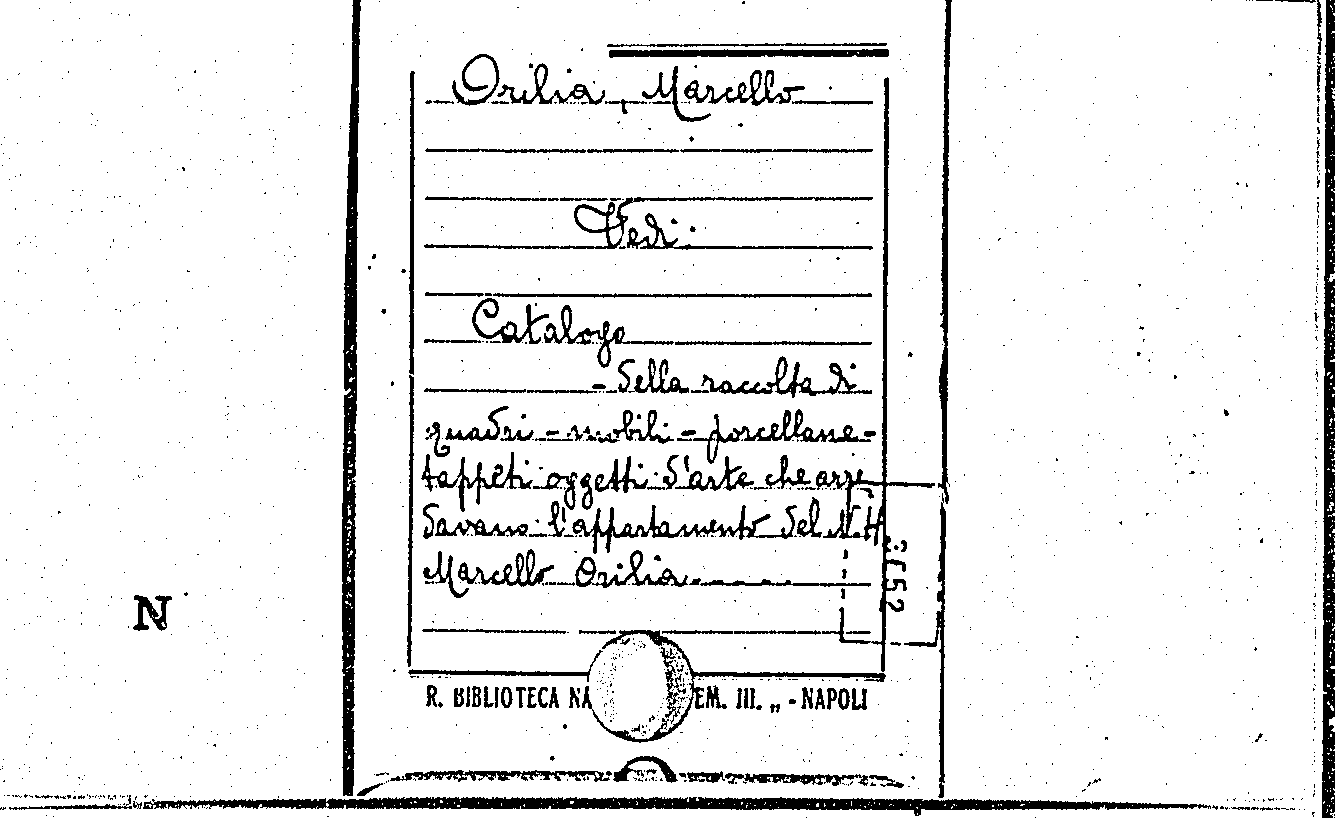 Orilia, Marcello
Vedi:
Catalogo
- della raccolta di
quadri - mobili - porcellane -
tappeti oggetti d'arte che arre
davano l'appartamento del N.H.
Marcello Orilia......
N
R. BIBLIOTECA NA EM. III. „ - NAPOLI